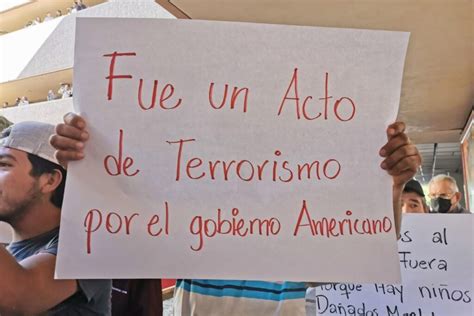 Fue un Acto
de Terrorismo
por el gobierno Americano
s al
Fuera
Porque Hay niños
Dañados